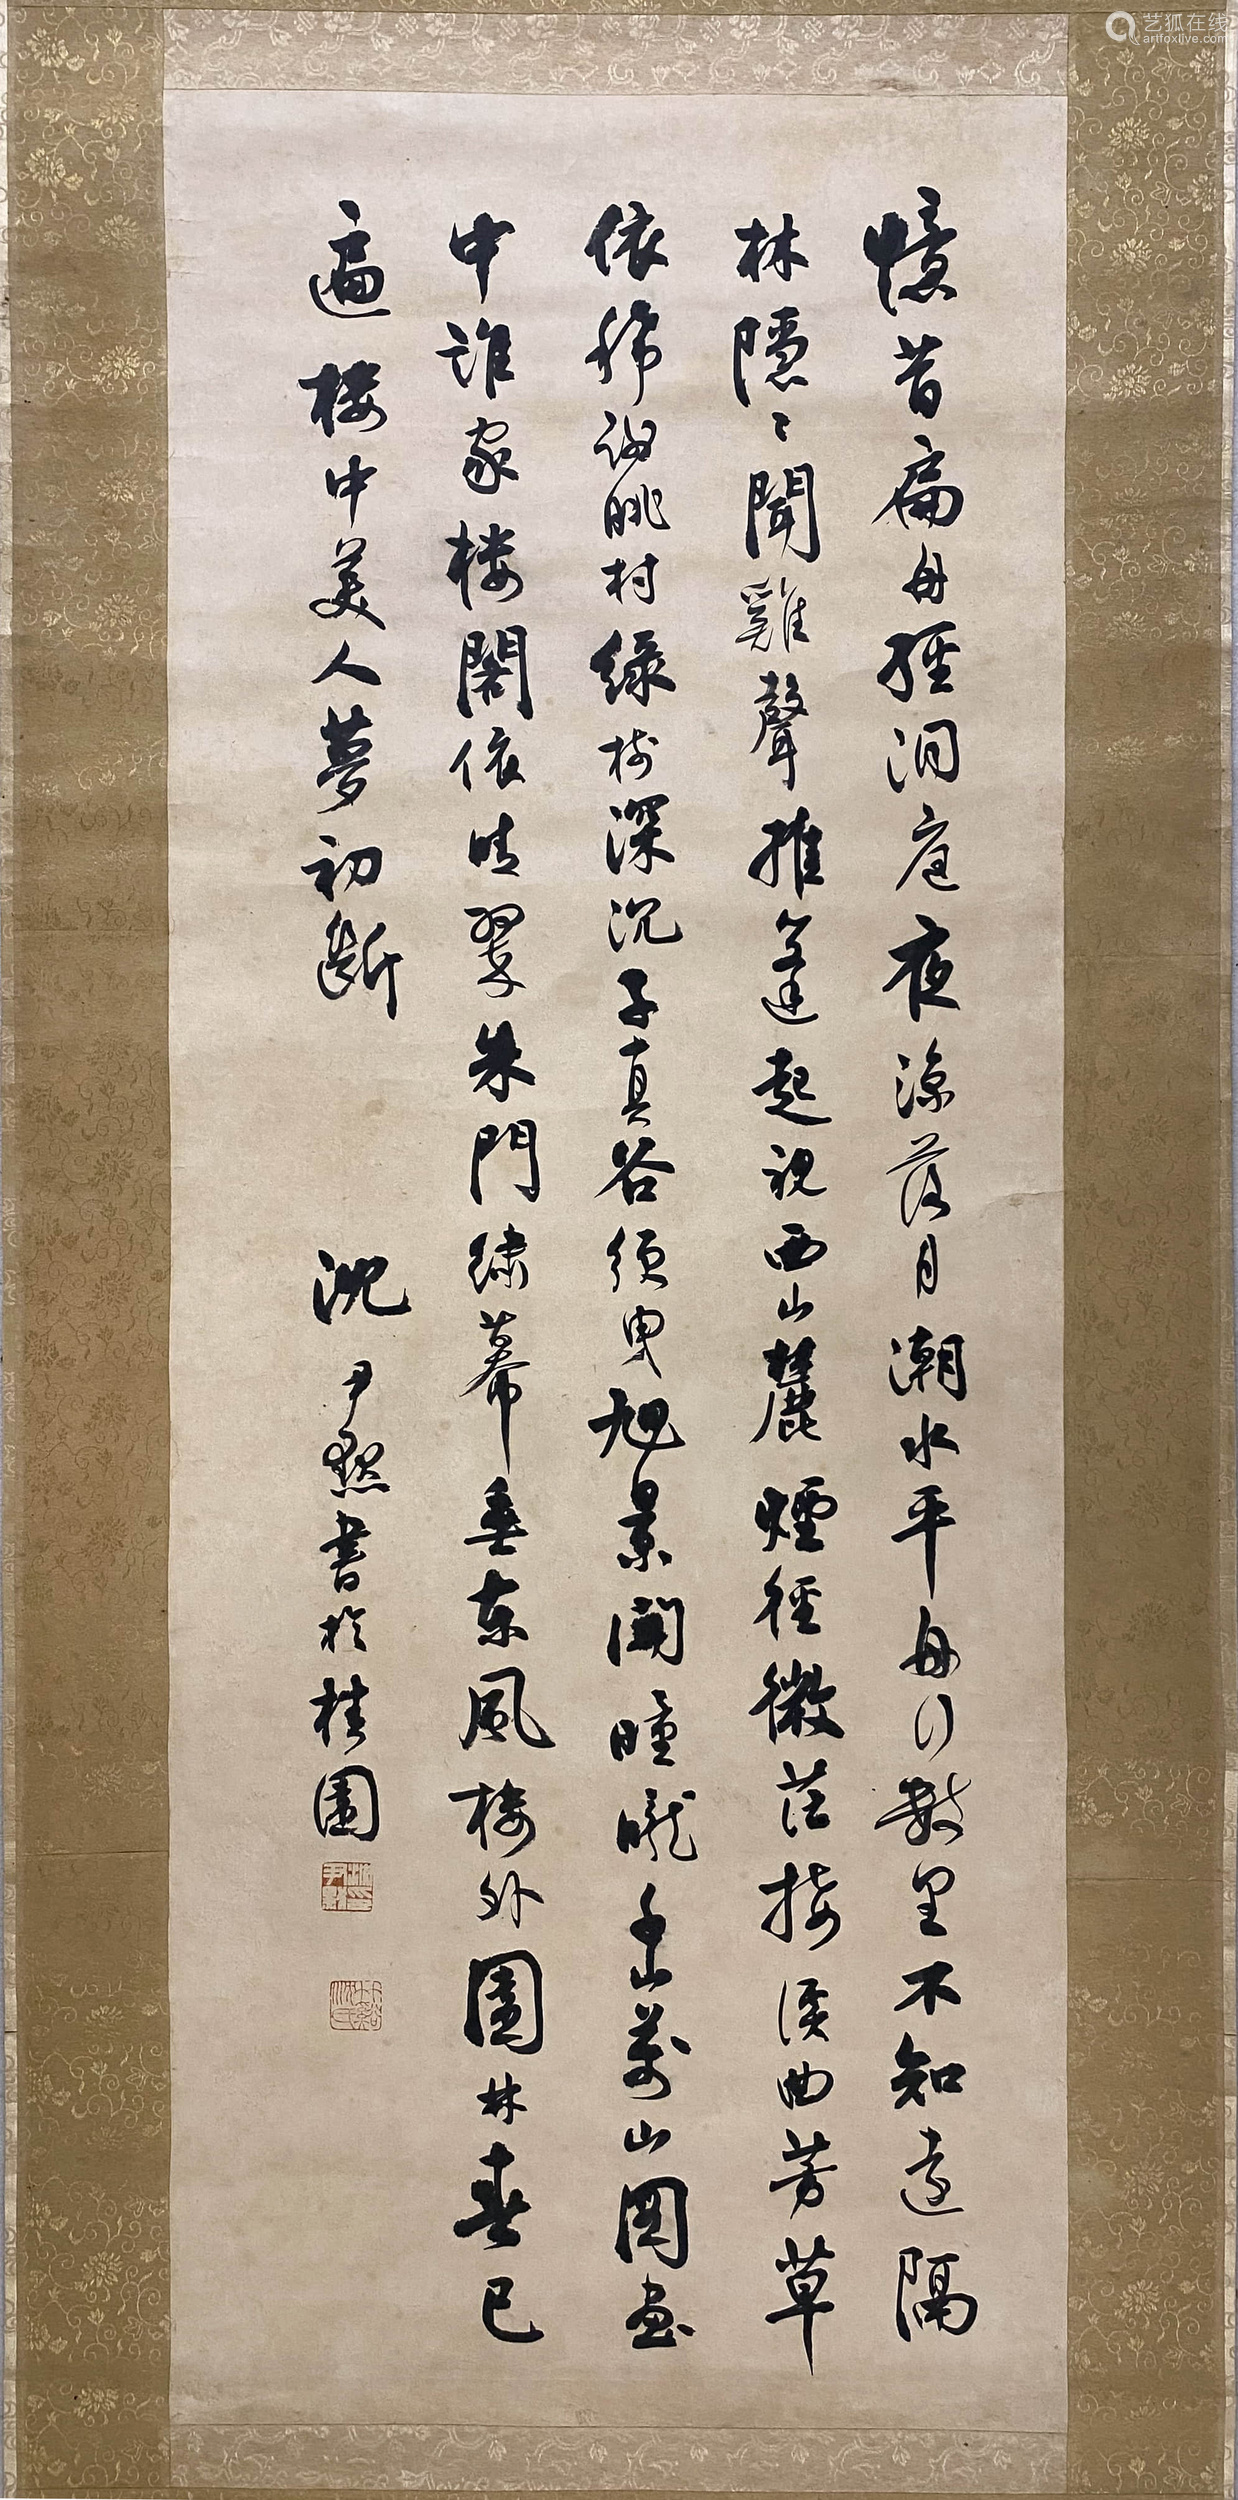 憶昔扁舟經洞庭夜涼落月潮水平舟行數里不知遠隔
林隱〻聞雞聲推篷起視西山麓煙徑微茫接溪曲芳草
依稀謝眺村綠樹深沉子真谷須臾旭景開曈曨千山萬山圖畫
中誰家樓閣依晴翠朱門繡幕垂東風樓外園林春已
遍樓中美人夢初斷
沈尹默書於桂園
艺狐在线
artfoxlive.com